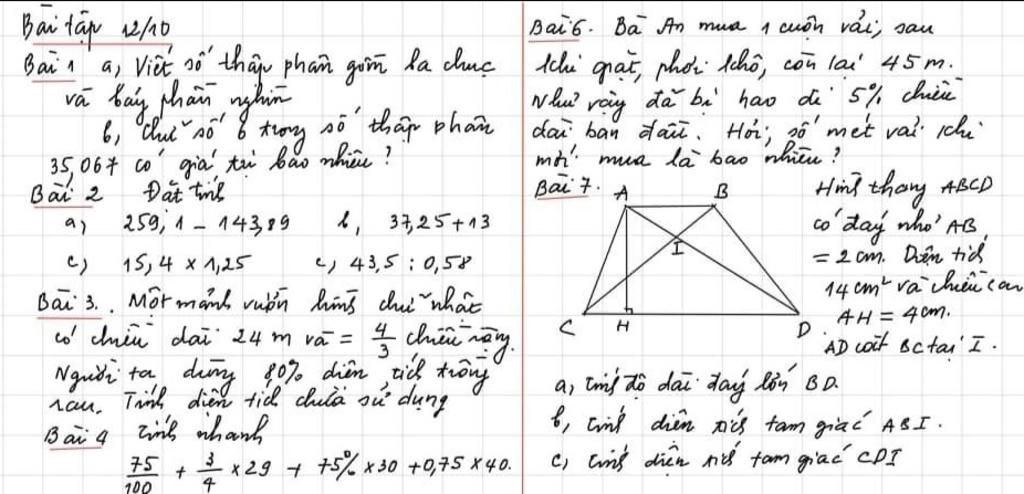 Bài tập 12/10
Bài 1 a, Viết số thập phân gồm ba chục
và bảy phần nghìn
b, chữ số 6 trong số thập phân
35,067 có giá trị bao nhiêu?
Bài 2 Đặt tính
a, 259,1 - 143,89 b, 37,25+13
c, 15,4 x 1,25 c, 43,5 : 0,58
Bài 3. Một mảnh vườn hình chữ nhật
có chiều dài 24 m và = 4/3 chiều rộng.
Người ta dùng 80% diện tích trồng
rau. Tính diện tích chưa sử dụng
Bài 4 tính nhanh
75/100 + 3/4 x 29 + 75% x 30 + 0,75 x 40.
Bài 6. Bà An mua 1 cuộn vải, sau
khi giặt, phơi khô, còn lại 45 m.
Như vậy đã bị hao đi 5% chiều
dài ban đầu. Hỏi, số mét vải khi
mới mua là bao nhiêu?
Bài 7.
A B
I
C H D
Hình thang ABCD
có đáy nhỏ AB
= 2 cm. Diện tích
14 cm² và chiều cao
AH = 4cm.
AD cắt BC tại I.
a, tính độ dài đáy lớn BD.
b, tính diện tích tam giác ABI.
c, tính diện tích tam giác CDI